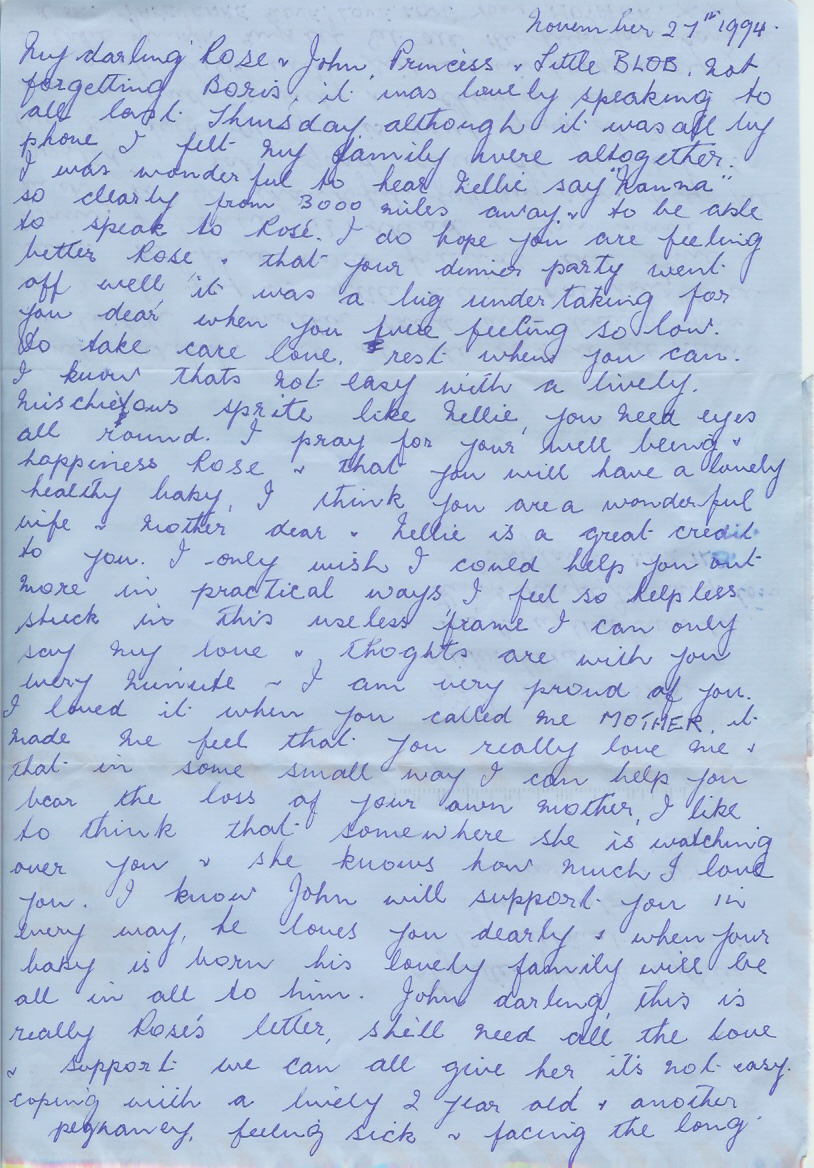 November 27th 1994.
My darling Rose & John, Princess & Little BLOB, not
forgetting Boris, it was lovely speaking to
all last Thursday, although it was all by
phone I felt my family were altogether.
I was wonderful to hear Nellie say "Nanna"
so clearly from 3000 miles away & to be able
to speak to Rose. I do hope you are feeling
better Rose & that your dinner party went
off well it was a big undertaking for
you dear when you were feeling so low.
Do take care love, rest when you can.
I know thats not easy with a lively.
mischiefous sprite like Nellie, you need eyes
all round. I pray for your well being &
happiness Rose & that you will have a lovely
healthy baby, I think you are a wonderful
wife & mother dear & Nellie is a great credit
to you. I only wish I could help you out
more in practical ways I feel so helpless
stuck in this useless frame I can only
say my love & thoghts are with you
every minute ~ I am very proud of you.
I loved it when you called me MOTHER, it
made me feel that you really love me &
that in some small way I can help you
bear the loss of your own mother, I like
to think that somewhere she is watching
over you & she knows how much I love
you. I know John will support you in
every way, he loves you dearly & when your
baby is born his lovely family will be
all in all to him. John darling, this is
really Rose's letter, she'll need all the love
& support we can all give her it's not easy.
coping with a lively 2 year old & another
pegnancy, feeling sick & facing the long